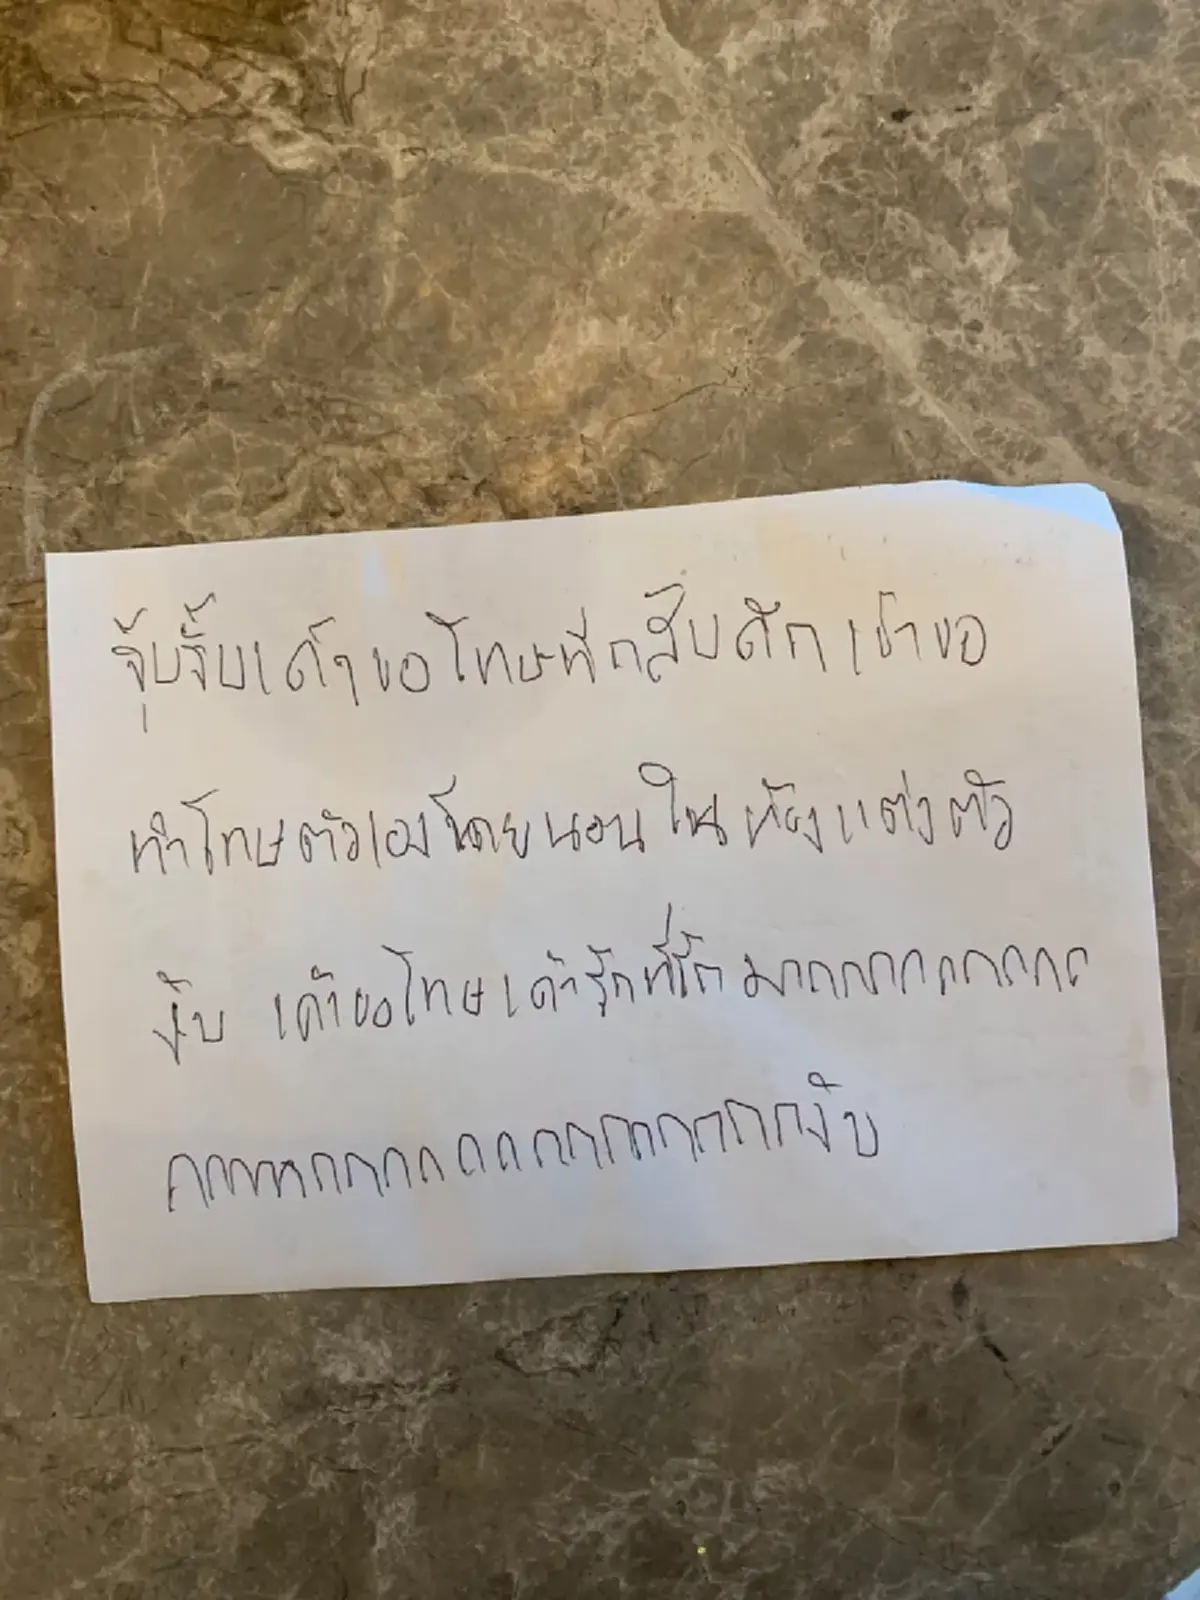 จุ้บจิ้บเค้าขอโทษที่กลับดึก เค้าขอ
ทำโทษตัวเองโดยนอนในห้องแต่งตัว
งับ เค้าขอโทษเค้ารู้กที่รั้กมากกกกกกกก
กกกกกกกกกกกกกกกกกกงับ